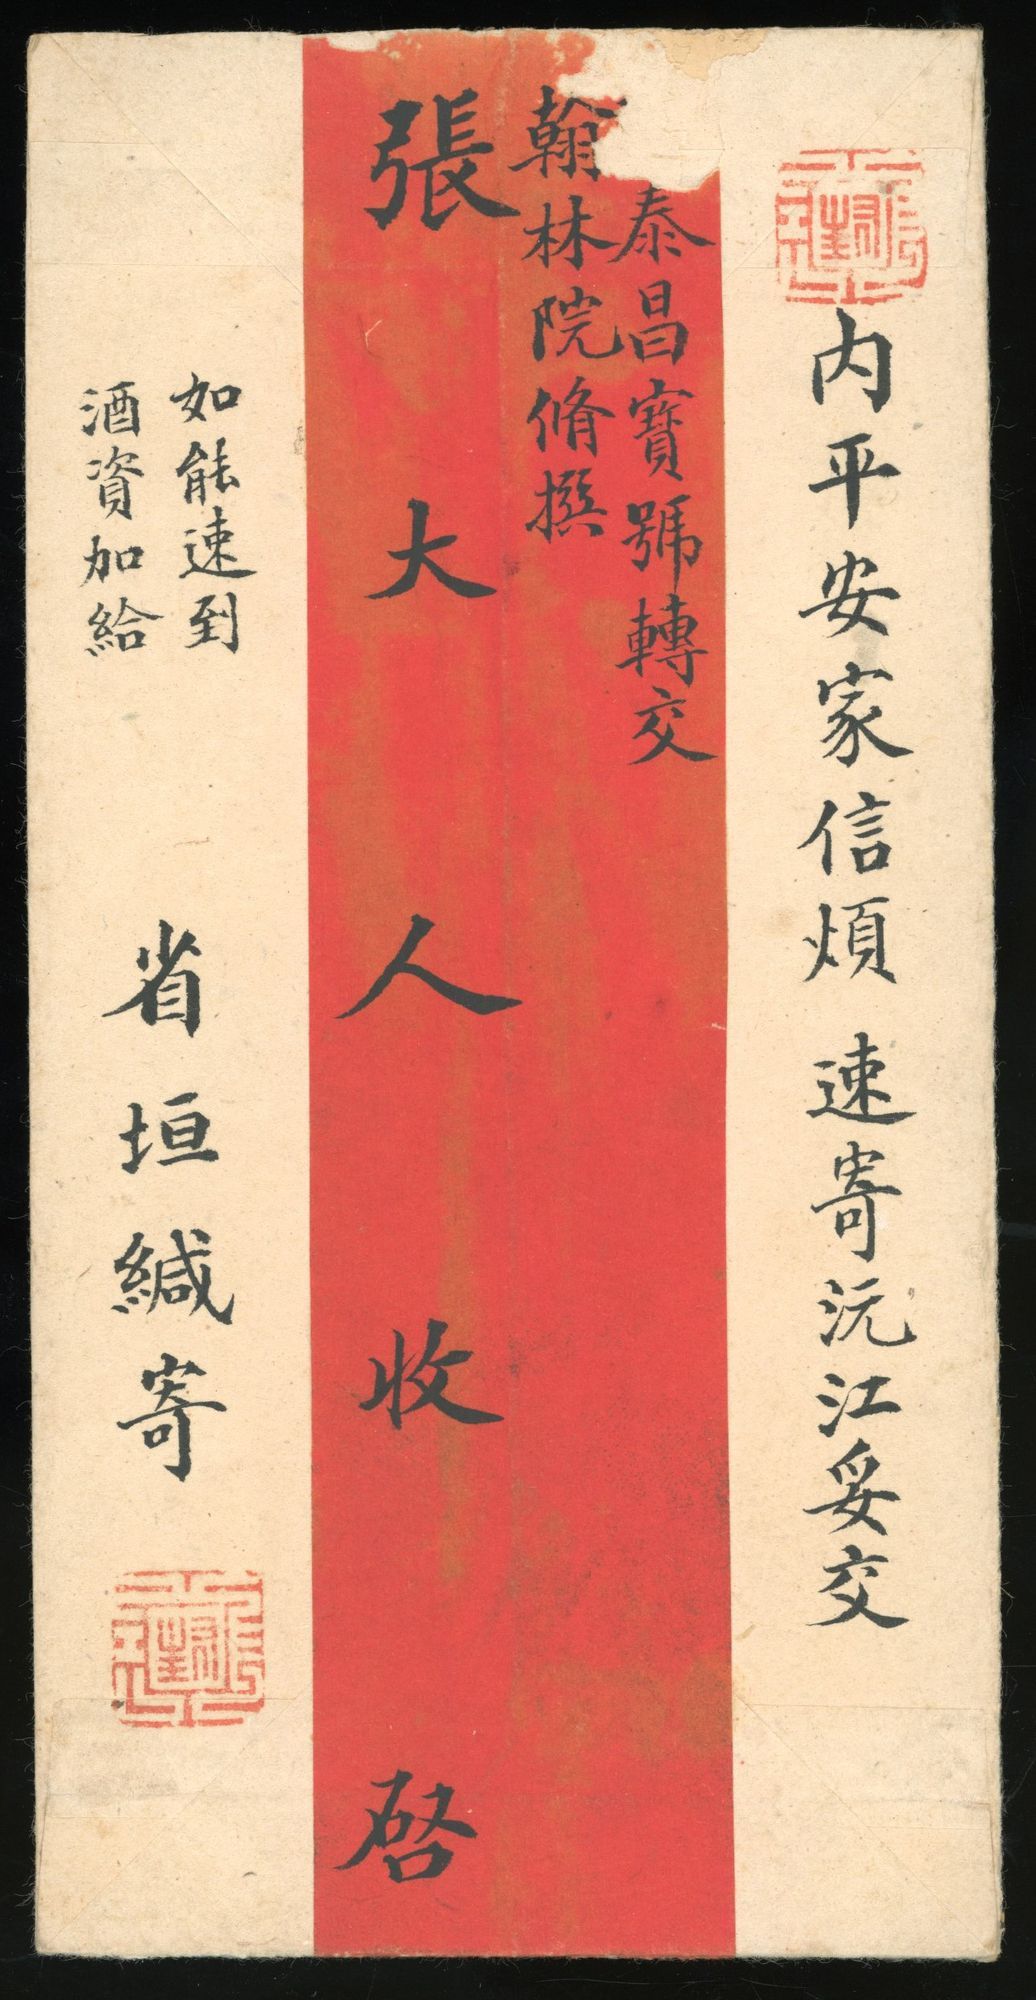 内平安家信煩 速寄沅江妥交
泰昌寶號轉交
翰林院脩撰
張大人收啓
如能速到
酒資加給
省垣緘寄